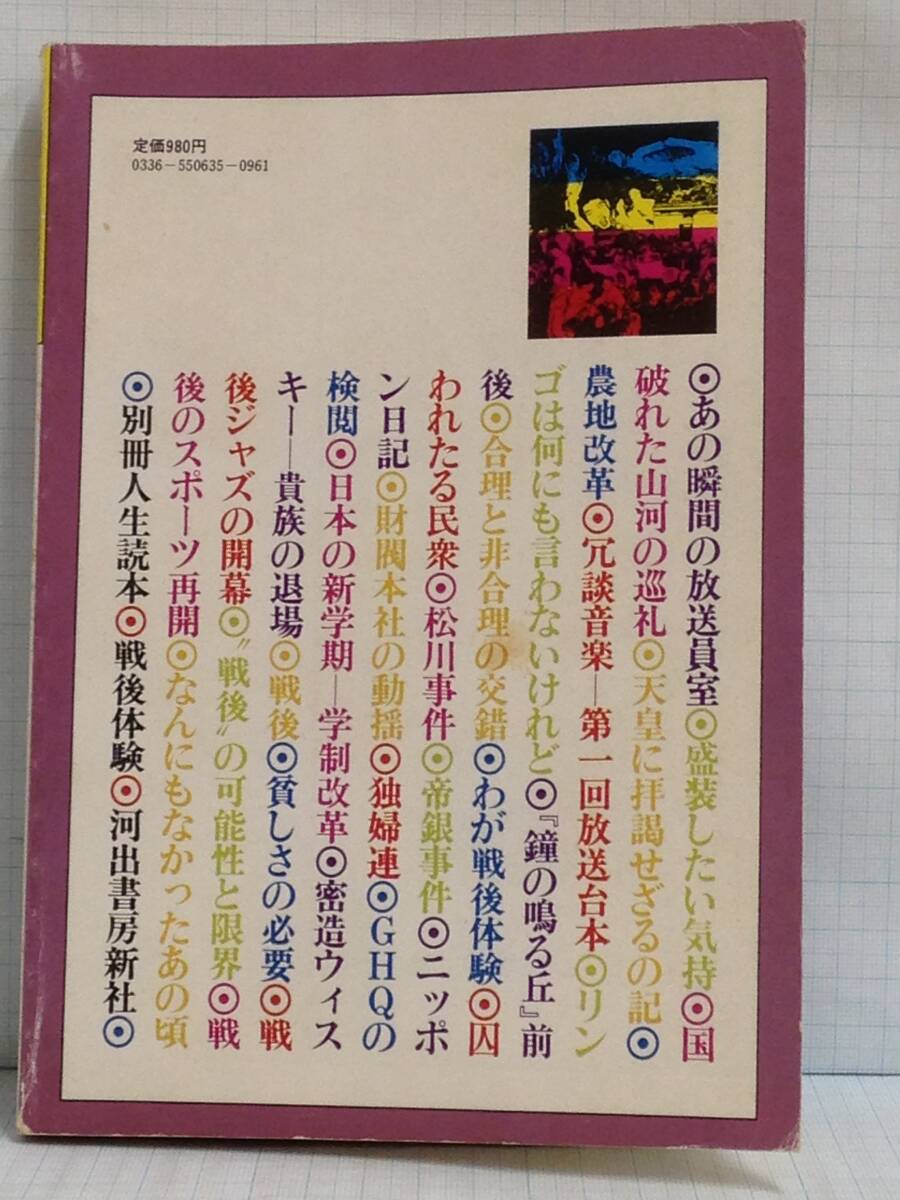 定価980円
0336-550635-0961
⦿あの瞬間の放送員室⦿盛装したい気持⦿国
破れた山河の巡礼⦿天皇に拝謁せざるの記⦿
農地改革⦿冗談音楽—第一回放送台本⦿リン
ゴは何にも言わないけれど⦿『鐘の鳴る丘』前
後⦿合理と非合理の交錯⦿わが戦後体験⦿囚
われたる民衆⦿松川事件⦿帝銀事件⦿ニッポ
ン日記⦿財閥本社の動揺⦿独婦連⦿GHQの
検閲⦿日本の新学期—学制改革⦿密造ウィス
キー—貴族の退場⦿戦後⦿貧しさの必要⦿戦
後ジャズの開幕⦿〝戦後〟の可能性と限界⦿戦
後のスポーツ再開⦿なんにもなかったあの頃
⦿別冊人生読本⦿戦後体験⦿河出書房新社⦿